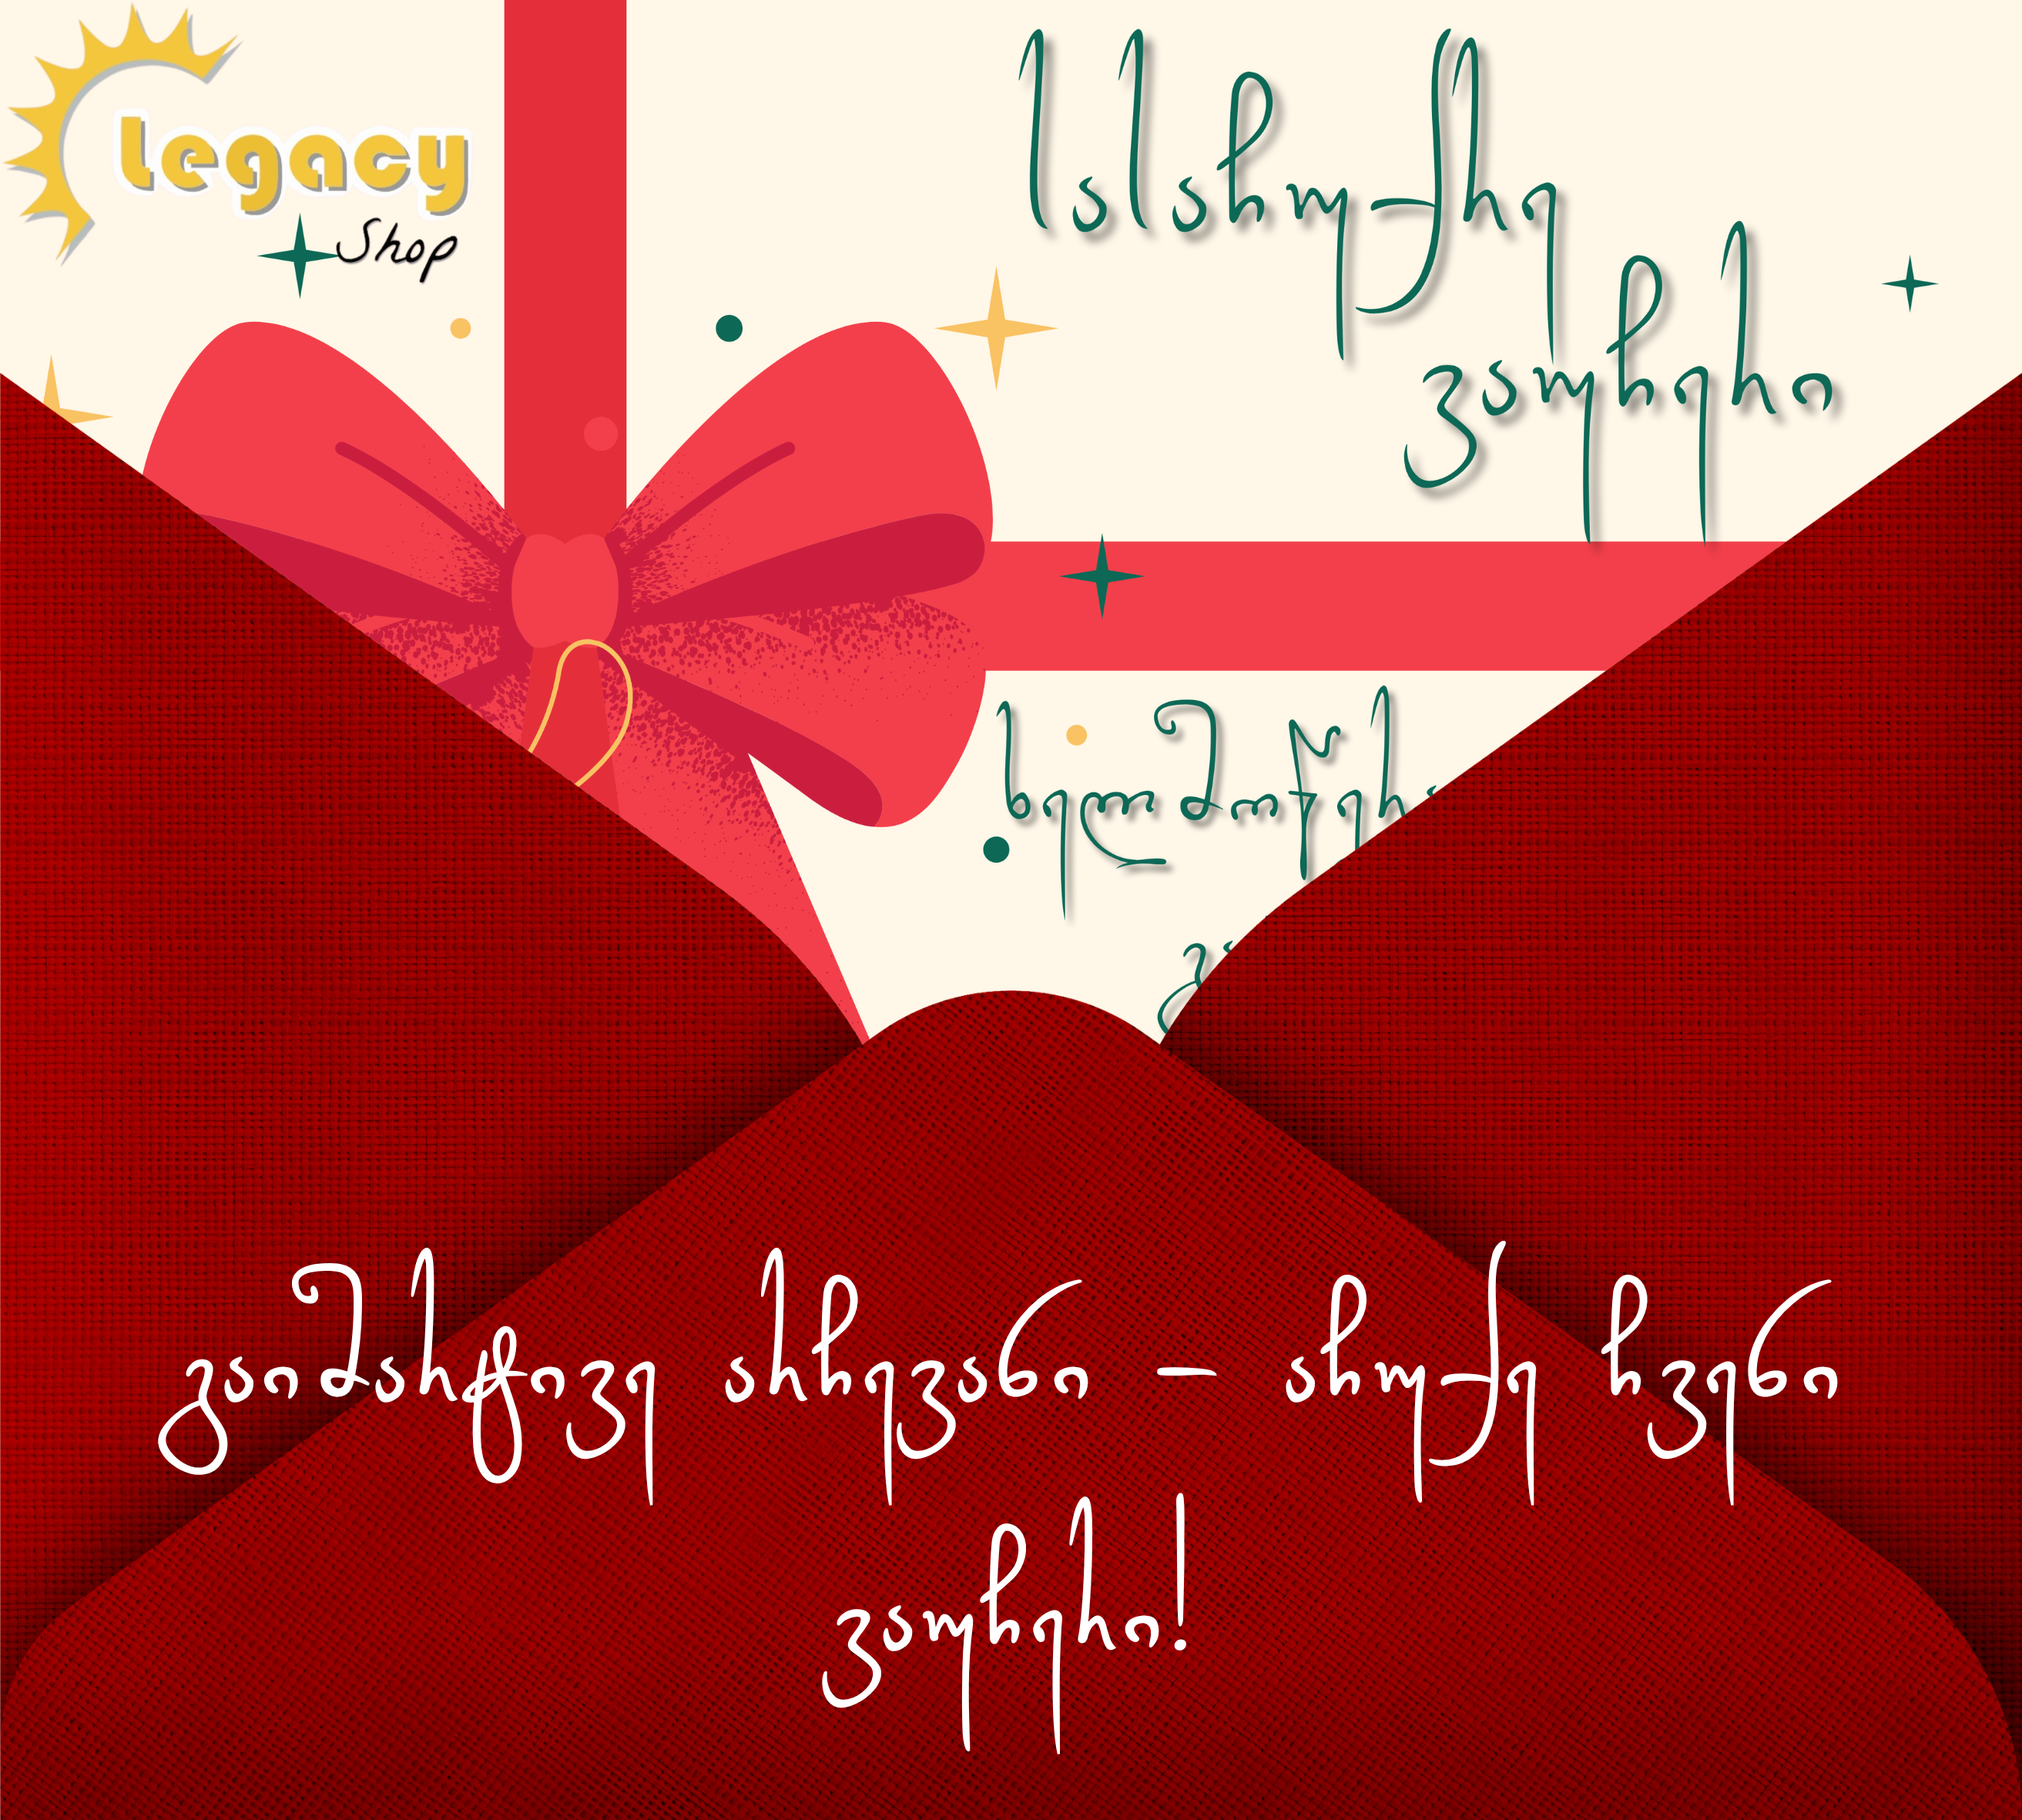 Legacy
Shop
სასაჩუქრე
ვაუჩერი
გაიმარტივე არჩევანი – აჩუქე ჩვენი
ვაუჩერი!